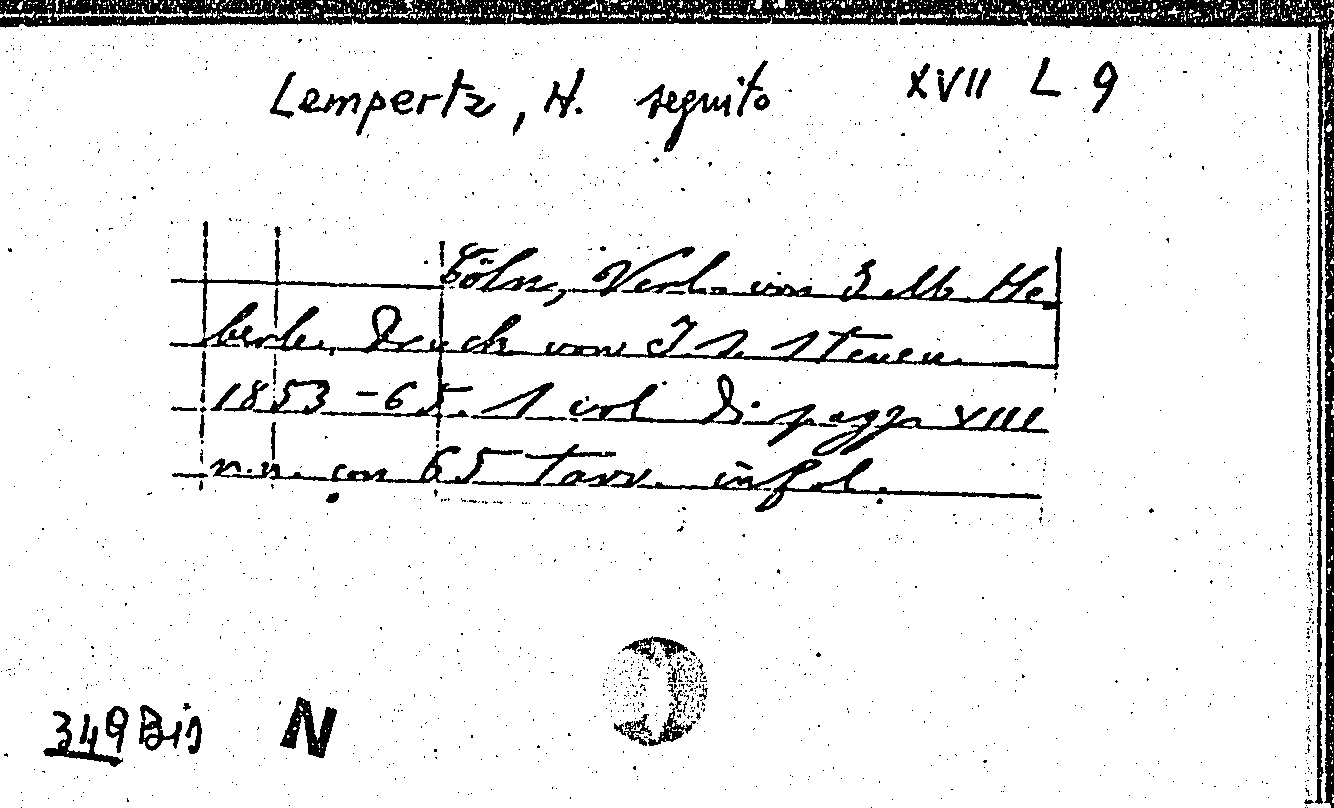 Lempertz, H. seguito XVII L 9
Cöln, Verl. von J. M. He
berle, Druck von J. S. Steven.
1853-65. 1 vol di pagg. VIII
n.n. con 65 tavv. in fol.
349 Bis N